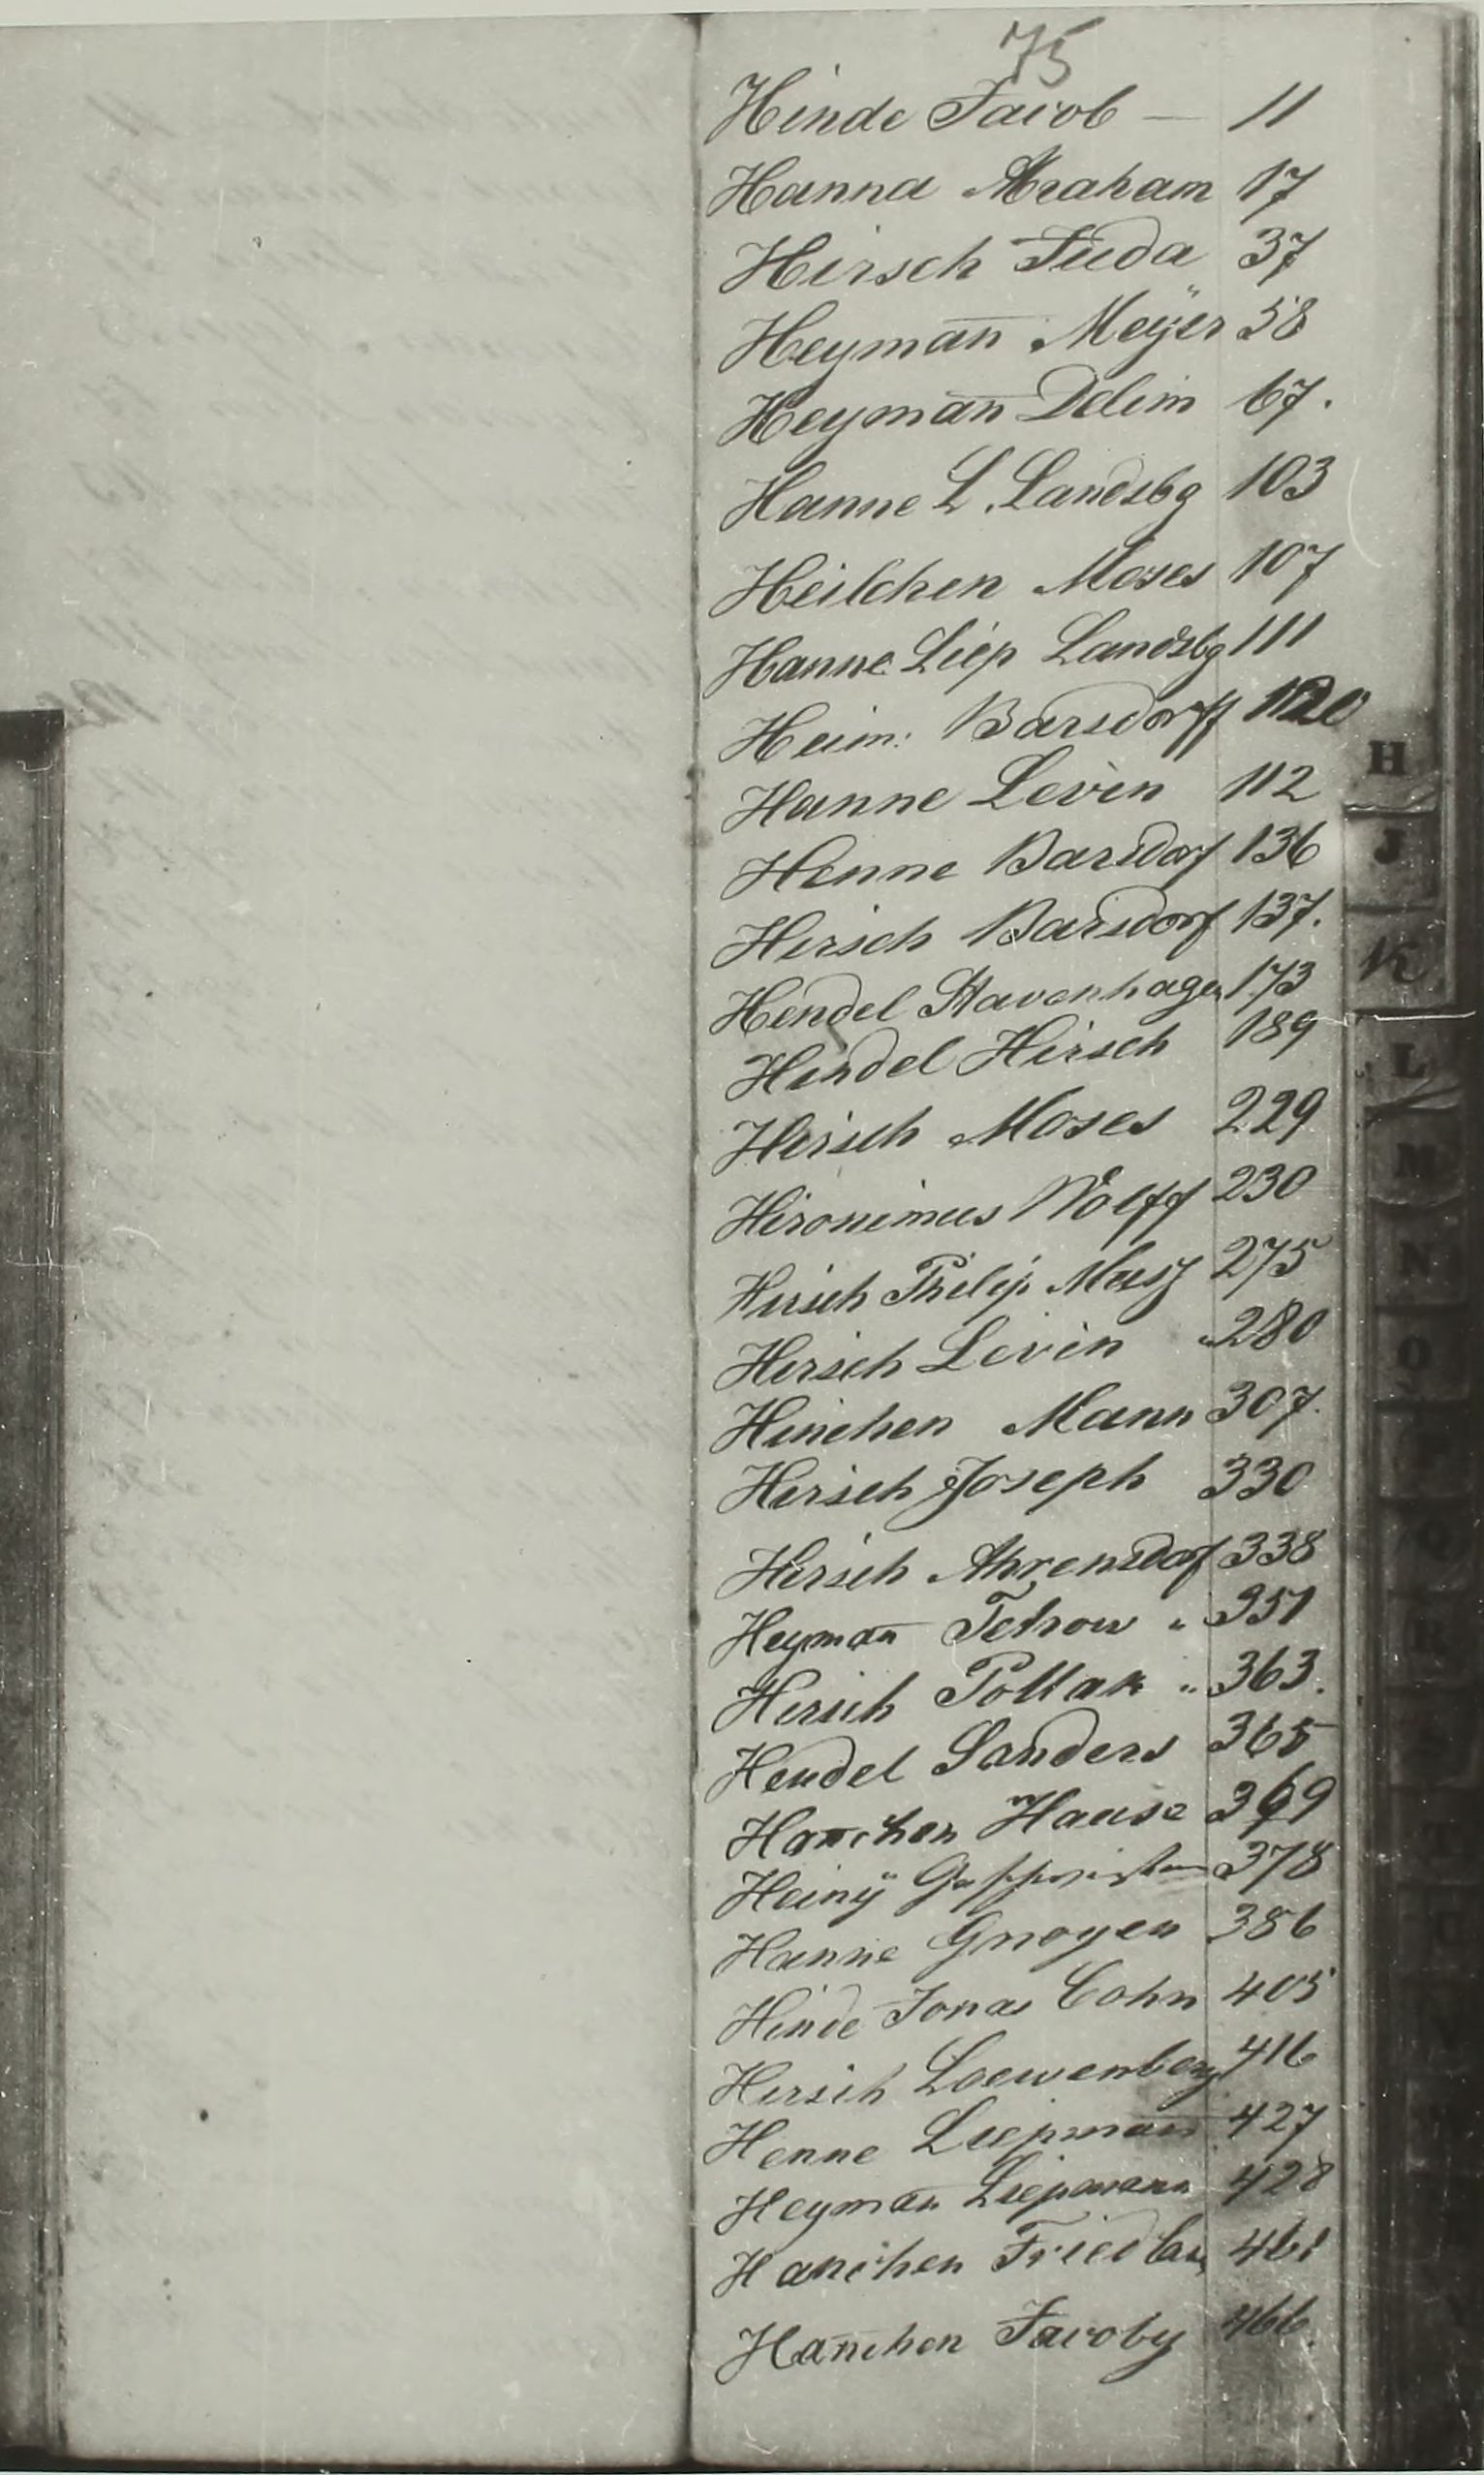 75
Hinde Jacob — 11
Hanna Abraham 17
Hirsch Juda 37
Heyman̅ Meÿer 58
Heyman̅ Delim 67.
Hanne L. Landsbg 103
Heilchen Moses 107
Hanne Liep Landsbg 111
Heim: Barsdorff 120
Hanne Levin 112
Henne Barsdorf 136
Hirsch Barsdorf 137.
Hendel Stavenhagen 173
Hendel Hirsch 189
Hirsch Moses 229
Hironimus Wolff 230
Hirsch Philip 275
Hirsch Levin 280
Hinchen Mann 307.
Hirsch Joseph 330
Hirsch Ahrensdorf 338
Heyman̅ Tetrow " 351
Hirsch Pollak " 363.
Hendel Sanders 365
Han̅chen Hause 369
378
Hanne Gnoyen 386
Hinde Jonas Cohn 405
Hirsch Loewenberg 416
Henne Liepman̅ 427
Heyman̅ Liepmann 428
Hanchen 461
Han̅chen Jacoby 466.
H
J
K
L
M
N
O
P
Q
R